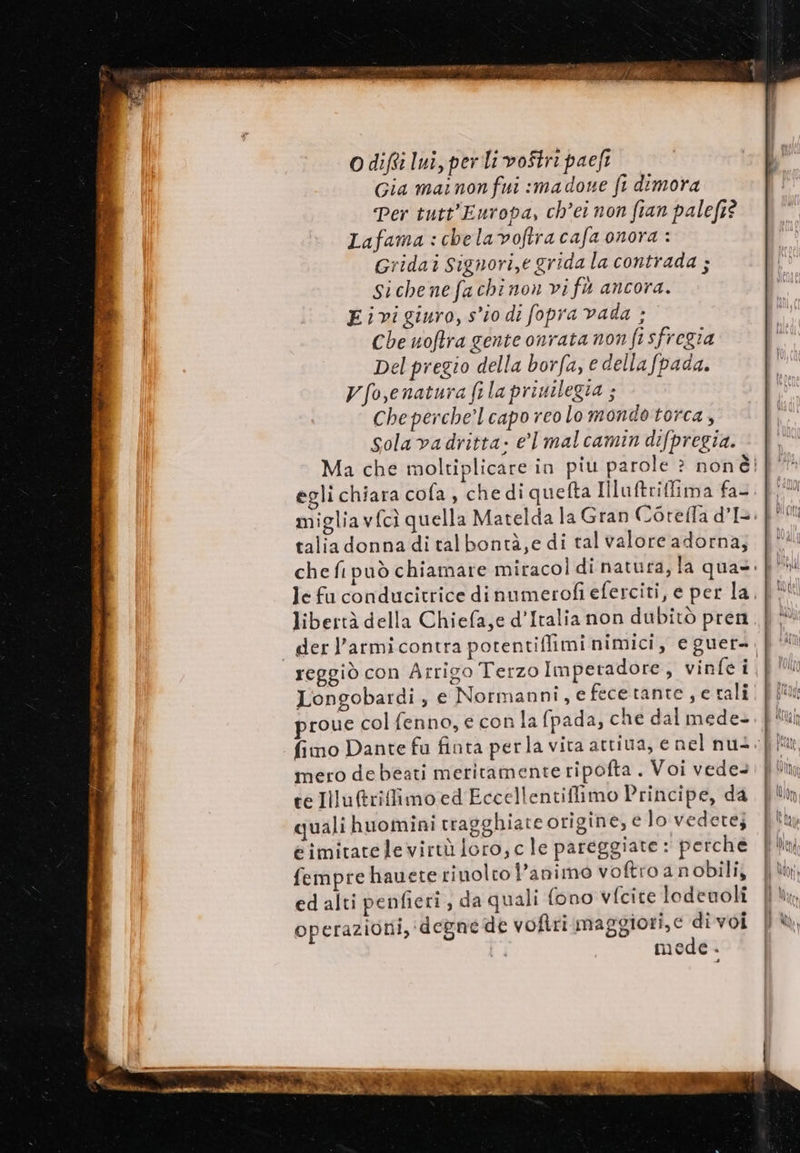 O diſſi lui, per li voſtri paeſi
Gia mai non fui : ma doue ſi dimora
Per tutt'Europa, ch'ei non ſian paleſi?
La fama : che la voſtra caſa onora :
Grida i Signori, e grida la contrada ;
Si che ne ſa chi non vi fù ancora.
E i vi giuro, s'io di ſopra vada ;
Che uoſtra gente onrata non ſi sfregia
Del pregio della borſa, e della ſpada.
Vſo, e natura ſi la priuilegia ;
Che perche'l capo reo lo mondo torca ,
Sola va dritta: e'l mal camin diſpregia.
Ma che moltiplicare in piu parole ? non è
egli chiara coſa , che di queſta Illuſtriſſima fa-
miglia vſcì quella Matelda la Gran Cõteſſa d'I-
talia donna di tal bontà, e di tal valore adorna,
che ſi può chiamare miracol di natura, la qua-
le fu conducitrice di numeroſi eſerciti, e per la
libertà della Chieſa, e d'Italia non dubitò pren
der l'armi contra potentiſſimi nimici , e guer-
reggiò con Arrigo Terzo Imperadore , vinſe i
Longobardi , e Normanni , e fece tante , e tali
proue col ſenno, e con la ſpada, che dal mede-
ſimo Dante fu finta per la vita attiua, e nel nu-
mero de beati meritamente ripoſta . Voi vede-
te Illuſtriſſimo ed Eccellentiſſimo Principe, da
quali huomini tragghiate origine, e lo vedete;
e imitate le virtù loro, e le pareggiate : perche
ſempre hauete riuolto l'animo voſtro a nobili,
ed alti penſieri , da quali ſono vſcite lodeuoli
operazioni, degne de voſtri maggiori, e di voi
mede-